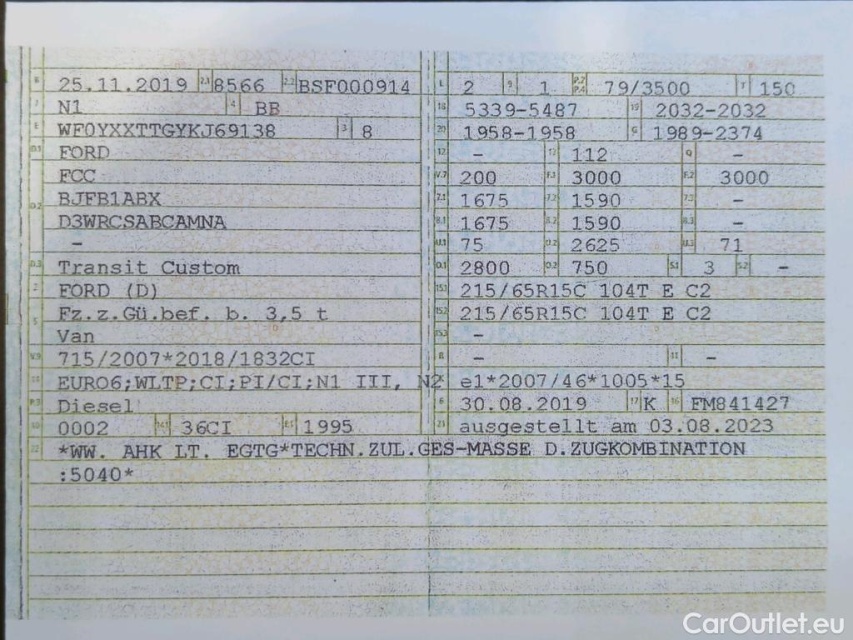 B 25.11.2019 2.1 8566 2.2 BSF000914
J N1 4 BB
E WF0YXXTTGYKJ69138 3 8
D.1 FORD
D.2 FCC
BJFB1ABX
D3WRCSABCAMNA
-
D.3 Transit Custom
2 FORD (D)
5 Fz.z.Gü.bef. b. 3,5 t
Van
V.9 715/2007*2018/1832CI
14 EURO6;WLTP;CI;PI/CI;N1 III, N2
P.3 Diesel
10 0002 14.1 36CI P.1 1995
L 2 9 1 P.2 P.4 79/3500 T 150
18 5339-5487 19 2032-2032
20 1958-1958 G 1989-2374
12 - 13 112 Q -
V.7 200 F.1 3000 F.2 3000
7.1 1675 7.2 1590 7.3 -
8.1 1675 8.2 1590 8.3 -
U.1 75 U.2 2625 U.3 71
O.1 2800 O.2 750 S.1 3 S.2 -
15.1 215/65R15C 104T E C2
15.2 215/65R15C 104T E C2
15.3 -
R - 11 -
K e1*2007/46*1005*15
6 30.08.2019 17 K 16 FM841427
21 ausgestellt am 03.08.2023
22 *WW. AHK LT. EGTG*TECHN.ZUL.GES-MASSE D.ZUGKOMBINATION
:5040*
CarOutlet.eu